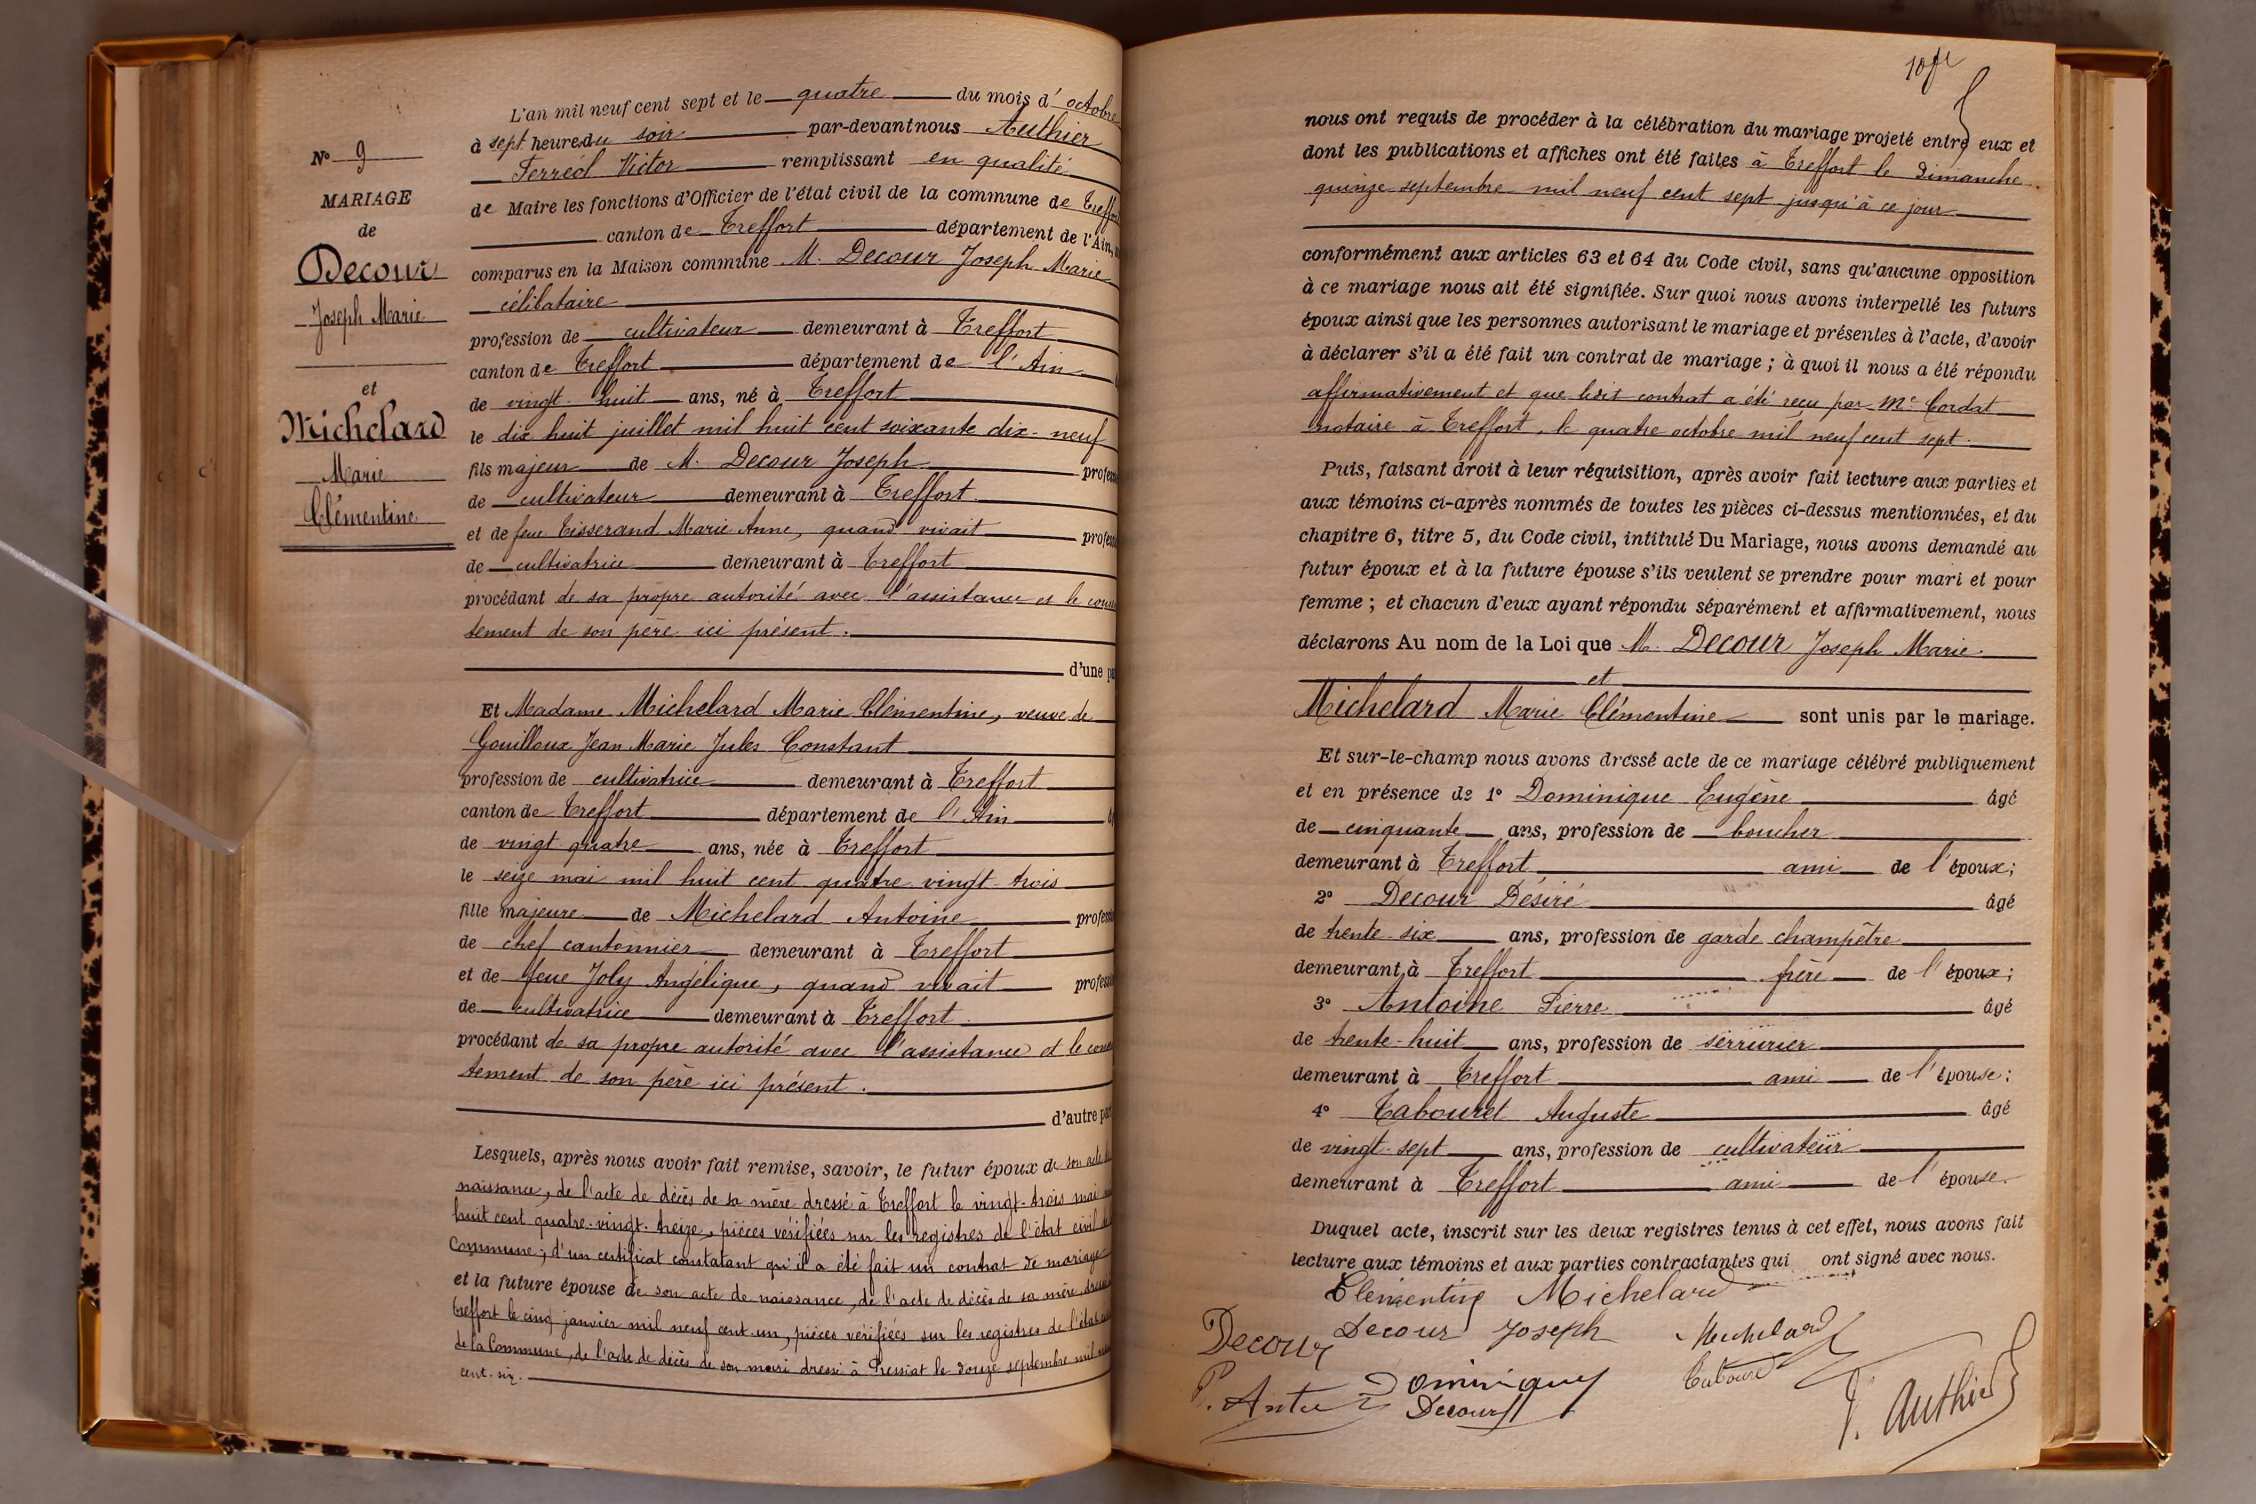 N° 9
MARIAGE
de
Decour
Joseph Marie
et
Michelard
Marie
Clémentine
L'an mil neuf cent sept et le quatre du mois d'octobre
à sept heures du soir par-devant nous Authier
Ferréol Victor remplissant en qualité
de Maire les fonctions d'Officier de l'état civil de la commune de Treffort
canton de Treffort département de l'Ain,
comparus en la Maison commune M. Decour Joseph Marie
célibataire
profession de cultivateur demeurant à Treffort
canton de Treffort département de l'Ain
de vingt-huit ans, né à Treffort
le dix huit juillet mil huit cent soixante dix-neuf
fils majeur de M. Decour Joseph profess
de cultivateur demeurant à Treffort
et de feue Tisserand Marie Anne, quand vivait profess
de cultivatrice demeurant à Treffort
procédant de sa propre autorité avec l'assistance et le consen
tement de son père ici présent.
d'une pa
Et Madame Michelard Marie Clémentine, veuve de
Gouilloux Jean Marie Jules Constant
profession de cultivatrice demeurant à Treffort
canton de Treffort département de l'Ain
de vingt quatre ans, née à Treffort
le seize mai mil huit cent quatre-vingt-trois
fille majeure de Michelard Antoine profess
de chef cantonnier demeurant à Treffort
et de feue Joly Angélique, quand vivait profess
de cultivatrice demeurant à Treffort
procédant de sa propre autorité avec l'assistance et le consen
tement de son père ici présent.
d'autre par
Lesquels, après nous avoir fait remise, savoir, le futur époux de son acte de
naissance, de l'acte de décès de sa mère dressé à Treffort le vingt-trois mai
huit cent quatre-vingt-treize, pièces vérifiées sur les registres de l'état civil de
Commune; d'un certificat constatant qu'il a été fait un contrat de mariage
et la future épouse de son acte de naissance, de l'acte de décès de sa mère, dressé
Treffort le cinq janvier mil neuf cent un, pièces vérifiées sur les registres de l'état
de la Commune, de l'acte de décès de son mari dressé à Pressiat le douze septembre mil
cent-six.
nous ont requis de procéder à la célébration du mariage projeté entre eux et
dont les publications et affiches ont été faites à Treffort le Dimanche
quinze septembre mil neuf cent sept jusqu'à ce jour
conformément aux articles 63 et 64 du Code civil, sans qu'aucune opposition
à ce mariage nous ait été signifiée. Sur quoi nous avons interpellé les futurs
époux ainsi que les personnes autorisant le mariage et présentes à l'acte, d'avoir
à déclarer s'il a été fait un contrat de mariage; à quoi il nous a été répondu
affirmativement et que ledit contrat a été reçu par Me Cordat
notaire à Treffort, le quatre octobre mil neuf cent sept.
Puis, faisant droit à leur réquisition, après avoir fait lecture aux parties et
aux témoins ci-après nommés de toutes les pièces ci-dessus mentionnées, et du
chapitre 6, titre 5, du Code civil, intitulé Du Mariage, nous avons demandé au
futur époux et à la future épouse s'ils veulent se prendre pour mari et pour
femme; et chacun d'eux ayant répondu séparément et affirmativement, nous
déclarons Au nom de la Loi que M. Decour Joseph Marie
et
Michelard Marie Clémentine sont unis par le mariage.
Et sur-le-champ nous avons dressé acte de ce mariage célébré publiquement
et en présence de 1° Dominique Eugène âgé
de cinquante ans, profession de boucher
demeurant à Treffort ami de l'époux;
2° Decour Désiré âgé
de trente-six ans, profession de garde champêtre
demeurant à Treffort frère de l'époux;
3° Antoine Pierre âgé
de trente-huit ans, profession de serrurier
demeurant à Treffort ami de l'épouse;
4° Tabouret Auguste âgé
de vingt-sept ans, profession de cultivateur
demeurant à Treffort ami de l'épouse.
Duquel acte, inscrit sur les deux registres tenus à cet effet, nous avons fait
lecture aux témoins et aux parties contractantes qui ont signé avec nous.
Clémentine Michelard
Decour Decour Joseph Michelard
Dominique Tabouret
Decour
Authier